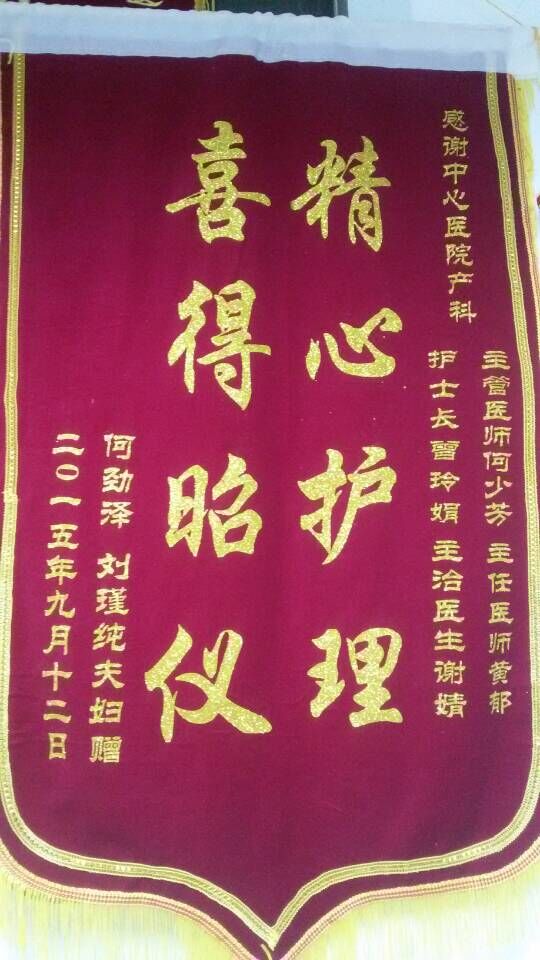 感谢中心医院产科
主管医师何少芳 主任医师黄郁
护士长曾玲娟 主治医生谢婧
精心护理
喜得昭仪
何劲泽 刘瑾纯夫妇赠
二〇一五年九月十二日